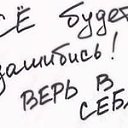 СЁ будет
зашибись!
ВЕРЬ В
СЕБ